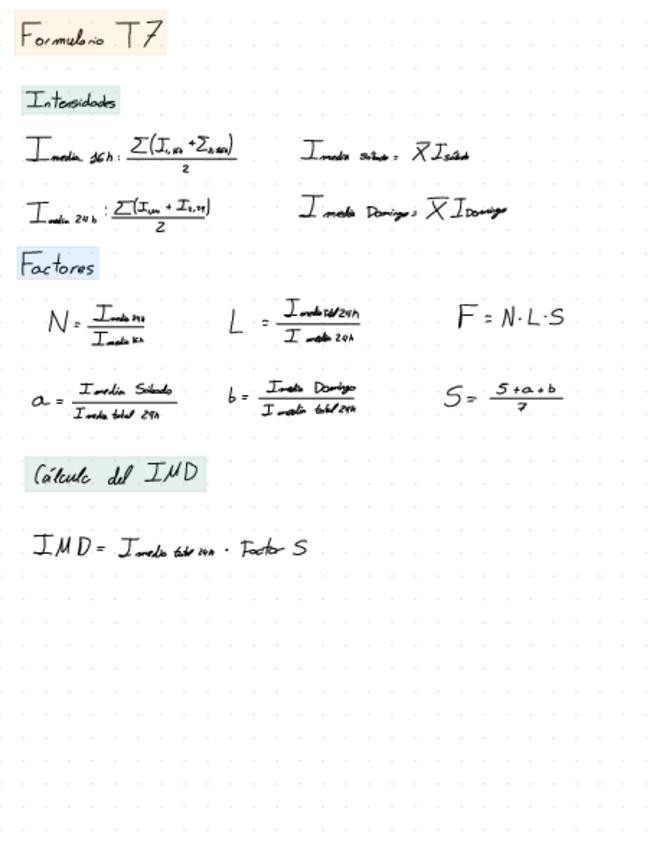 Formulario T7
Intensidades
I media 16h: Σ(I1,16h + Σ2,16h) / 2
I media Sábado = X̄ I Sábado
I media 24h: Σ(I1,24 + I2,24) / 2
I media Domingo = X̄ I Domingo
Factores
N = I media 24h / I media 16h
L = I media total 24h / I media 24h
F = N·L·S
a = I media Sábado / I media total 24h
b = I media Domingo / I media total 24h
S = 5+a+b / 7
Cálculo del IMD
IMD = I media total 24h · Factor S